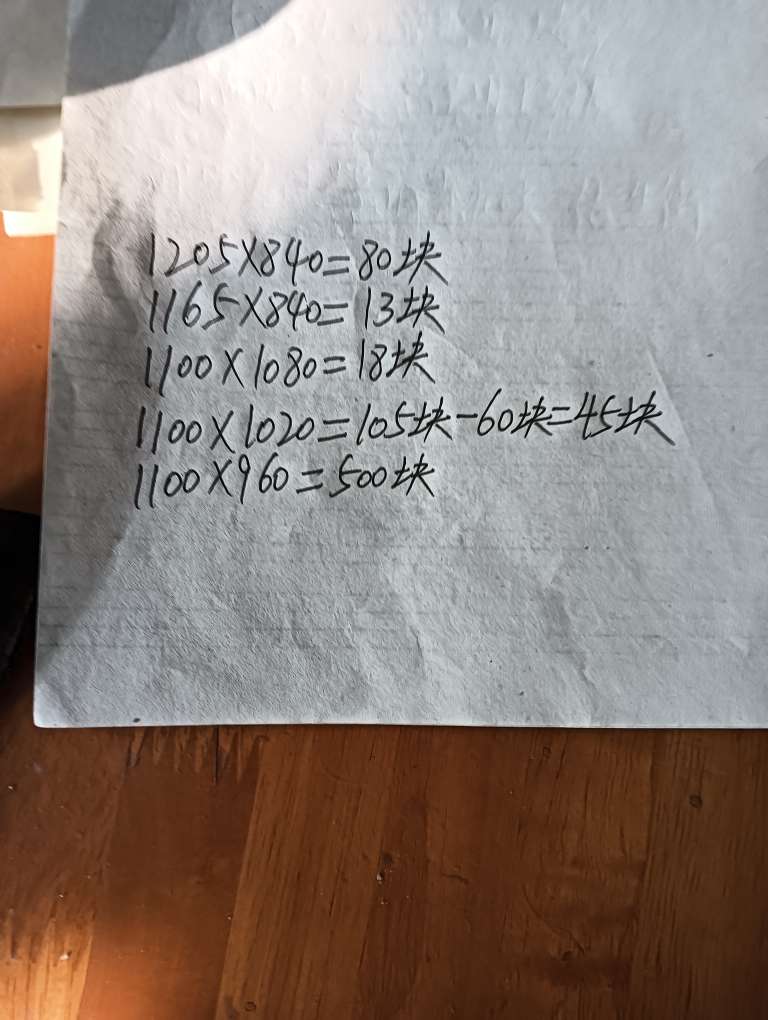 1205×840=80块
1165×840=13块
1100×1080=18块
1100×1020=105块-60块=45块
1100×960=500块